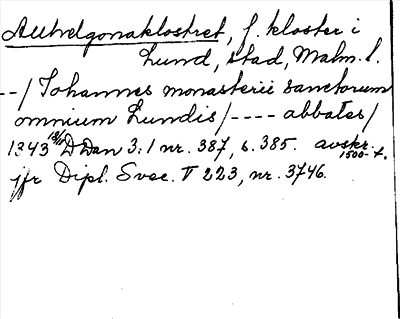 Allhelgonaklostret, f. kloster i
Lund, stad, Malm. l.
--/ Johannes monasterii sanctorum
omnium Lundis/ ---- abbates/
1343 18/11 DDan 3:1 nr. 387, s. 385. avskr. 1500-t.
jfr Dipl. Svec. V 223, nr. 3746.